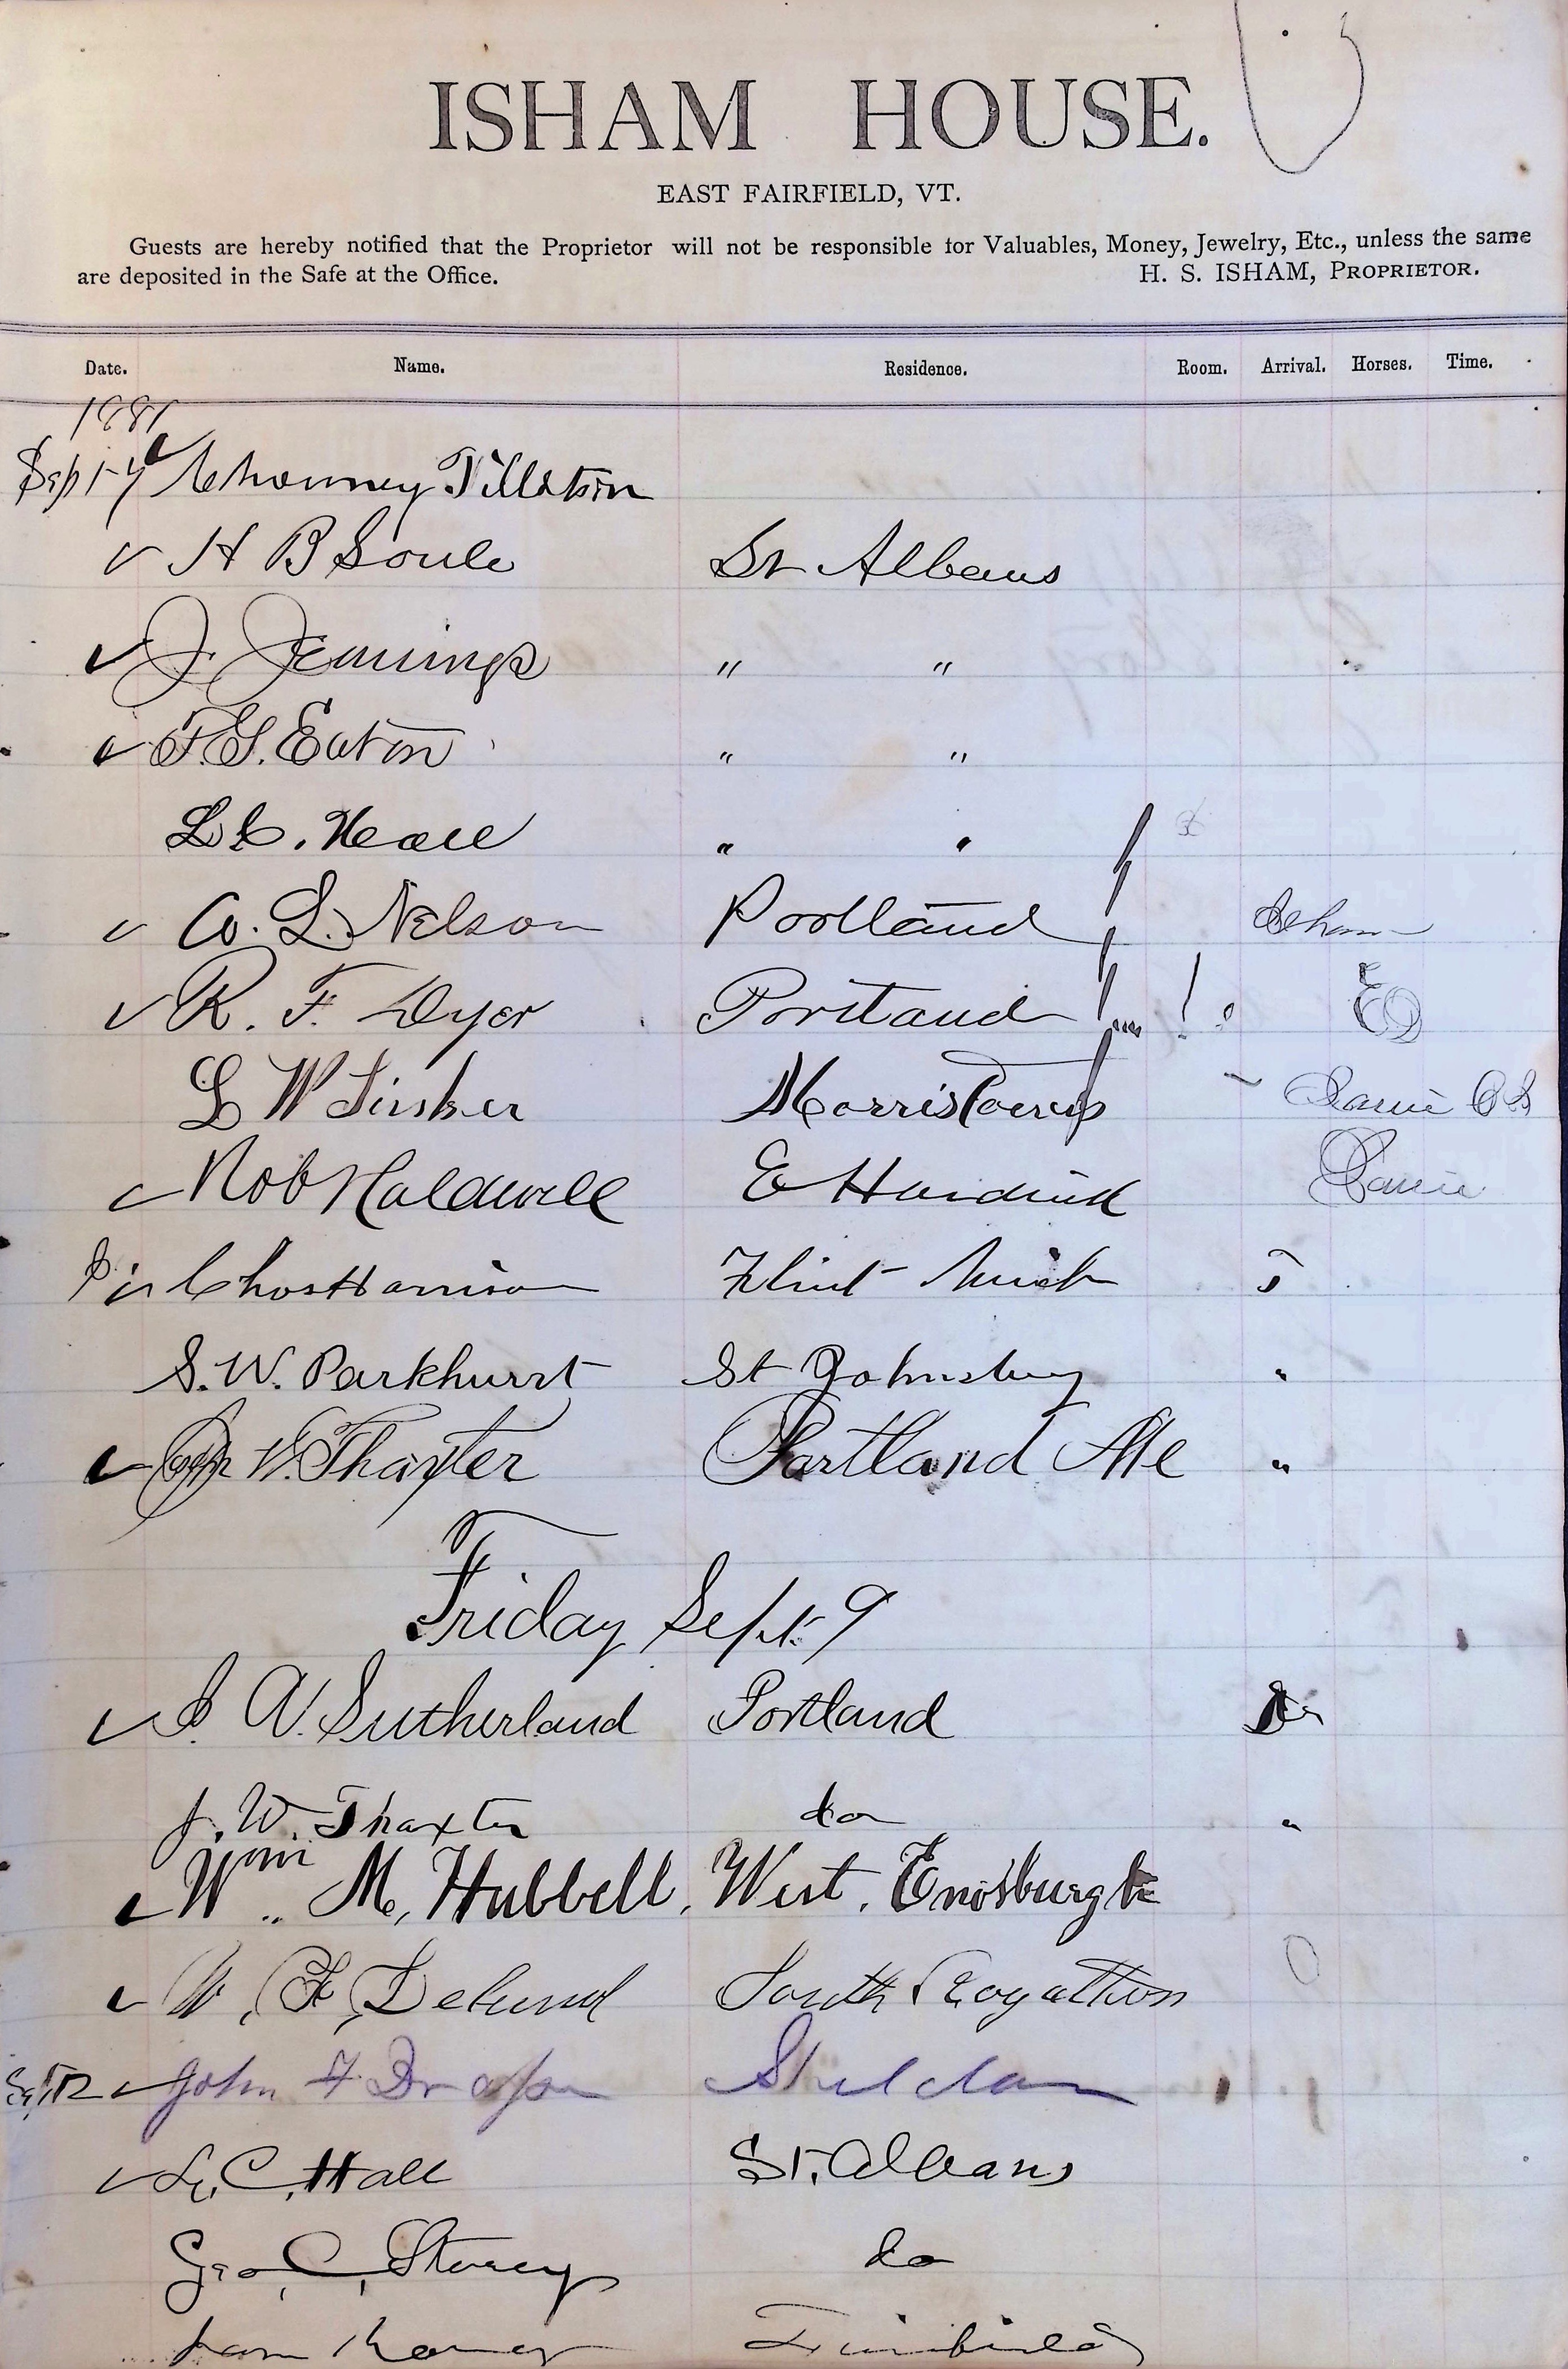 ISHAM HOUSE.
EAST FAIRFIELD, VT.
Guests are hereby notified that the Proprietor will not be responsible for Valuables, Money, Jewelry, Etc., unless the same
are deposited in the Safe at the Office. H. S. ISHAM, PROPRIETOR.
Date. Name. Residence. Room. Arrival. Horses. Time.
1881
Chauncey Tillotson
✓ H B Soule St Albans
✓ J. Jennings " "
✓ F. G. Eaton " "
L C. Hall " "
✓ L. Nelson Portland
✓ R. F. Dyer Portland
L W Morristown
✓ E Hardwick
Chas Harrison Flint Mich
S. W. Parkhurst St Johnsbury "
✓ W. Thaxter Portland Me "
Friday Sept. 9
✓ A. Sutherland Portland
J. W. Thaxter do "
✓ Wm M. Hubbell, West. Enosburgh
✓ W. F. South Royalton
✓ John F Draper Sheldon
✓ C. Hall St. Albans
Geo. C. Storey do
Sam Fairfield